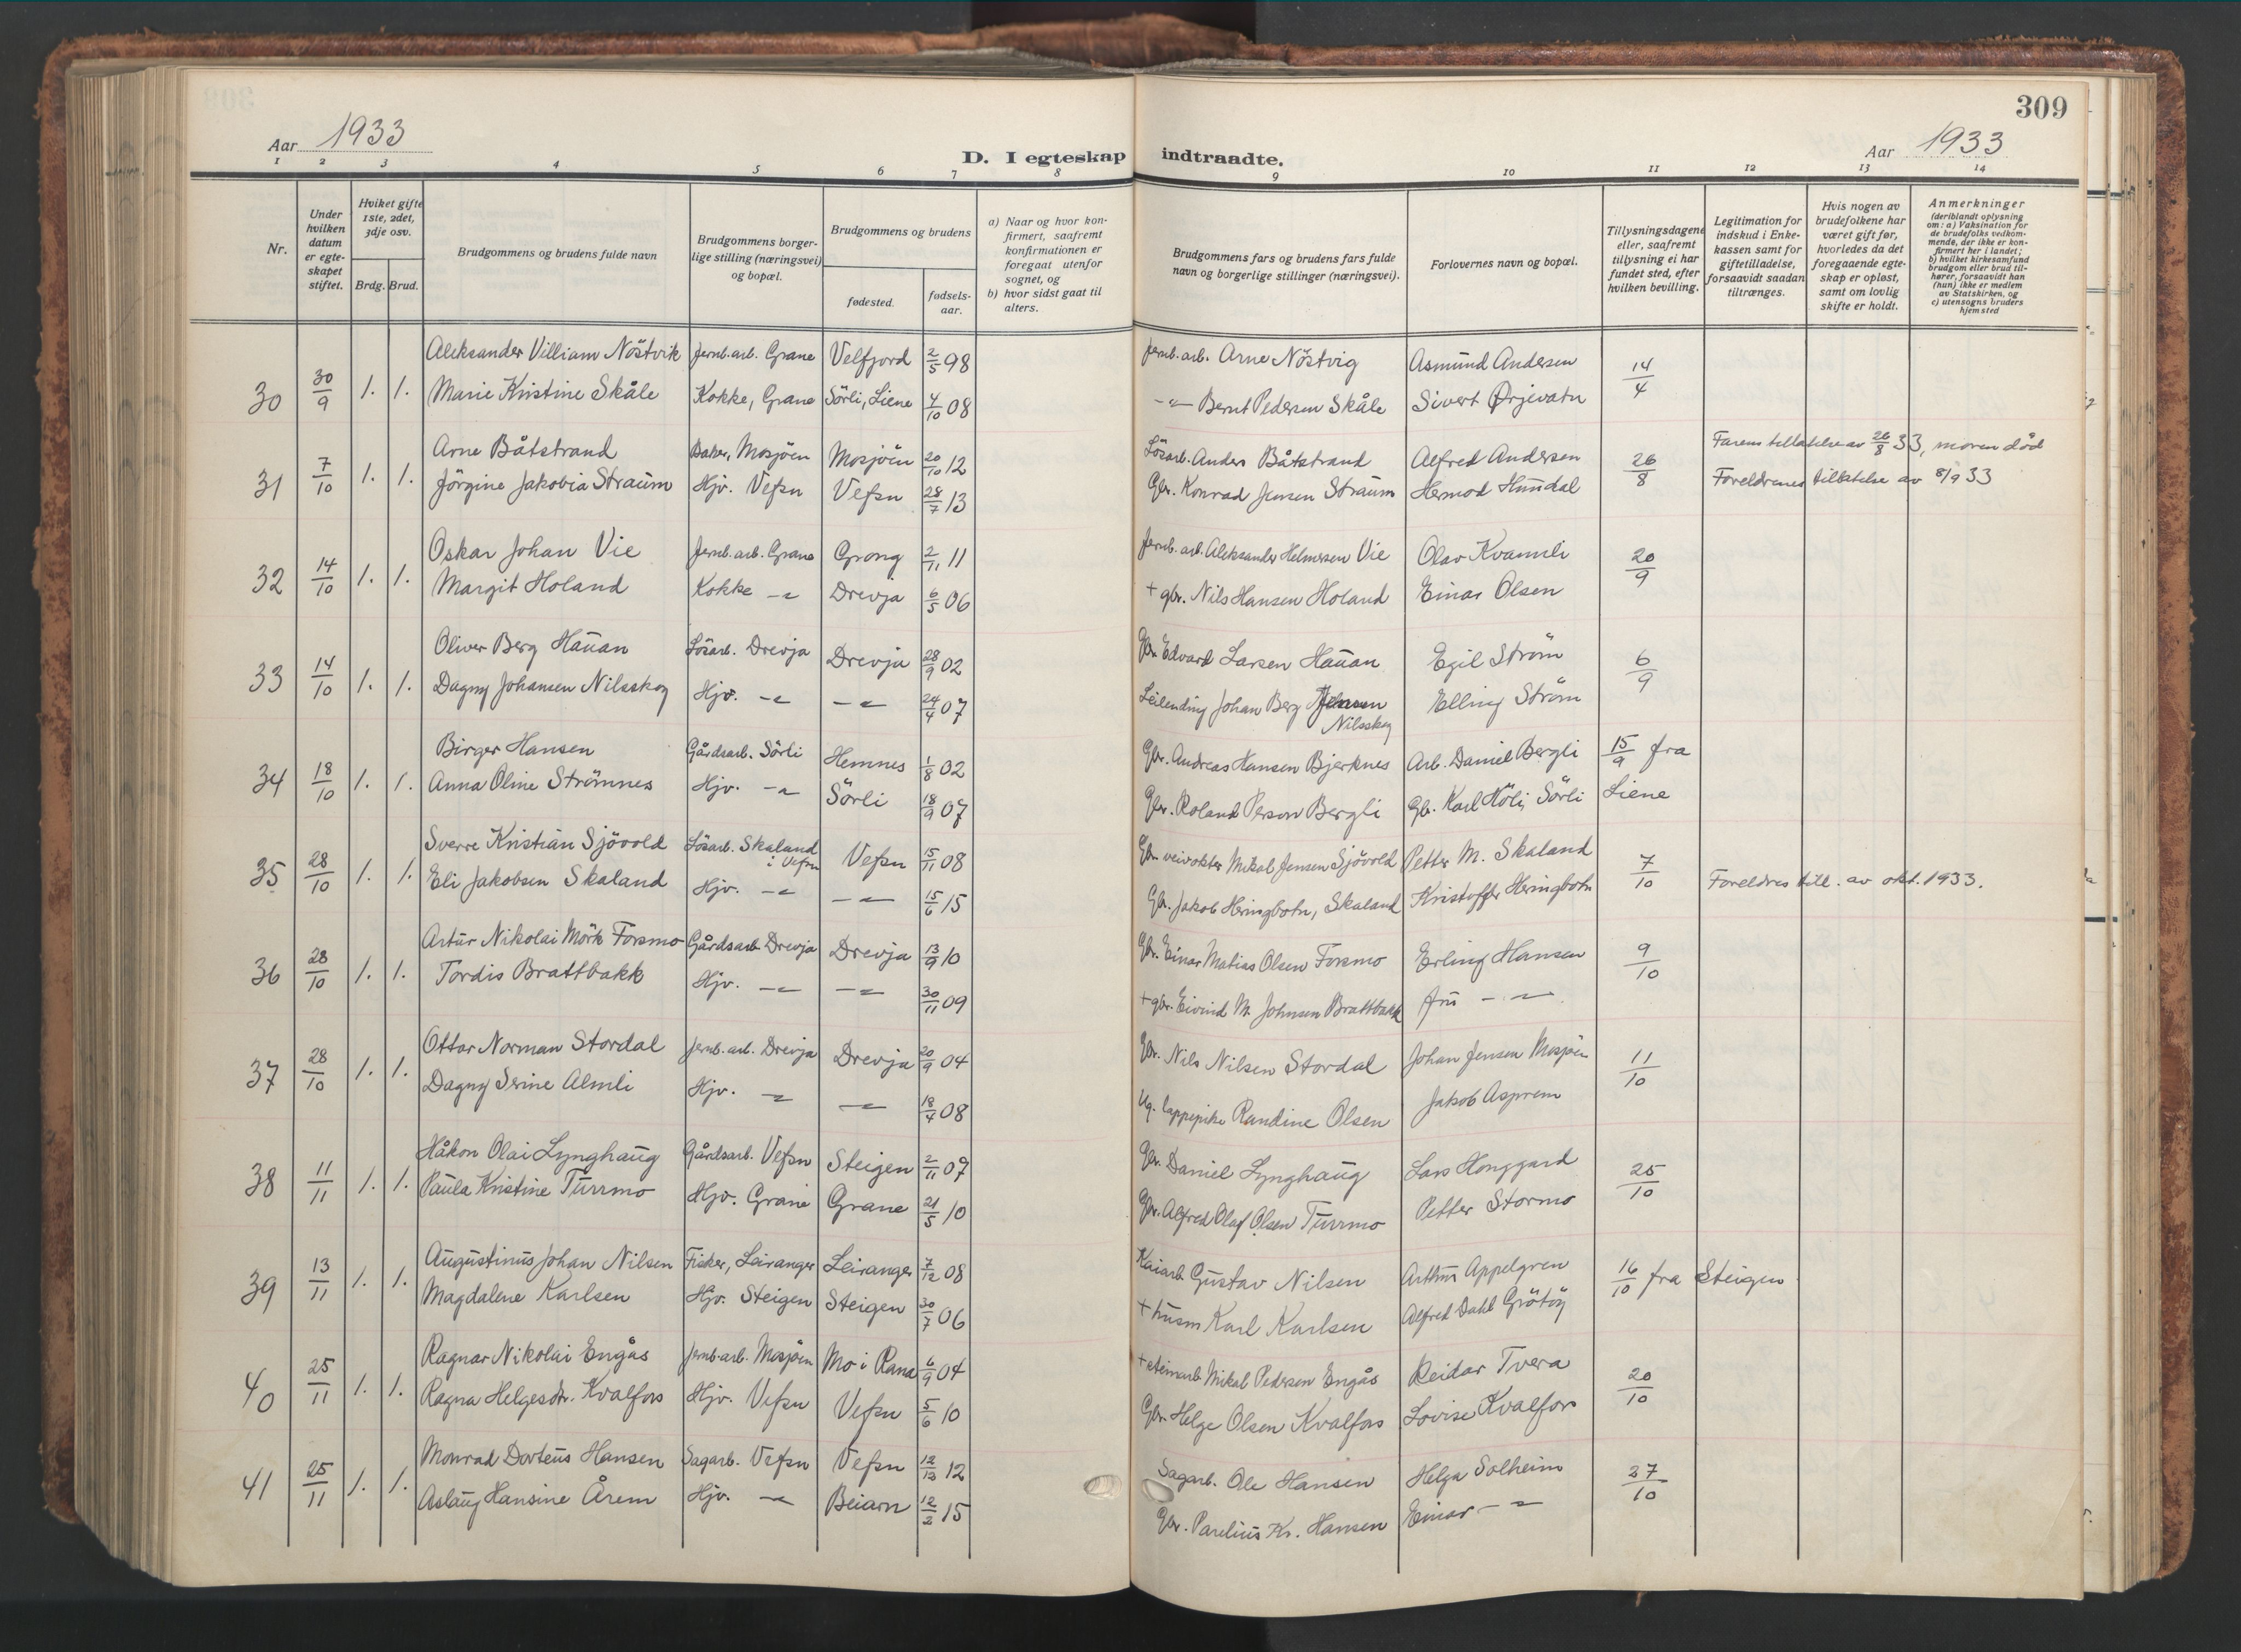 309
Aar 1933
D. I egteskap indtraadte.
Aar 1933
1 2 3 4 5 6 7 8 9 10 11 12 13 14
Nr.
Under hvilken datum er egteskapet stiftet.
Hviket gifte 1ste, 2det, 3dje osv.
Brdg. Brud.
Brudgommens og brudens fulde navn
Brudgommens borgerlige stilling (næringsvei) og bopæl.
Brudgommens og brudens
fødested.
fødselsaar.
a) Naar og hvor konfirmert, saafremt konfirmationen er foregaat utenfor sognet, og
b) hvor sidst gaat til alters.
Brudgommens fars og brudens fars fulde navn og borgerlige stillinger (næringsvei).
Forlovernes navn og bopæl.
Tillysningsdagene eller, saafremt tillysning ei har fundet sted, efter hvilken bevilling.
Legitimation for indskud i Enkekassen samt for giftetilladelse, forsaavidt saadan tiltrænges.
Hvis nogen av brudefolkene har været gift før, hvorledes da det foregaaende egteskap er opløst, samt om lovlig skifte er holdt.
Anmerkninger (deriblandt oplysning om: a) Vaksination for de brudefolks vedkommende, der ikke er konfirmert her i landet; b) hvilket kirkesamfund brudgom eller brud tilhører, forsaavidt han (hun) ikke er medlem av Statskirken, og c) utensogns bruders hjemsted
Aleksander Villiam Nöstvik Jernb.arb. Grane Velfjord 2/5 98 Jernb.arb. Arne Nöstvig Asmund Andersen 14/4
30 30/9 1. 1. Marie Kristine Skåle Kokke, Grane Sörli, Liene 4/10 08 -"- Bernt Pedersen Skåle Sivert Ørjevatn
Arne Båtstrand Baker, Mosjöen Mosjöen 20/10 12 Lösarb. Anders Båtstrand Alfred Andersen 26/8 Farens tillatelse av 26/8 33, moren död
31 7/10 1. 1. Jörgine Jakobia Straum Hjv. Vefsn Vefsn 28/7 13 Gbr. Konrad Jensen Straum Hermod Hundal Foreldrenes tillatelse av 8/9 33
Oskar Johan Vie Jernb.arb. Grane Grong 2/11 11 Jernb.arb. Aleksander Helmersen Vie Olav Kvamli 20/9
32 14/10 1. 1. Margit Holand Kokke -"- Drevja 6/5 06 + gbr. Nils Hansen Holand Einar Olsen
Oliver Berg Hauan Lösarb. Drevja Drevja 28/9 02 Gbr. Edvard Larsen Hauan Egil Ström 6/9
33 14/10 1. 1. Dagny Johansen Nilsskog Hjv. -"- -"- 24/4 07 Leilending Johan Berg Nilsskog Elling Ström
Birger Hansen Gårdsarb. Sörli Hemnes 1/8 02 Gbr. Andreas Hansen Bjerknes Arb. Daniel Bergli 15/9 fra
34 18/10 1. 1. Anna Oline Strömnes Hjv. -"- Sörli 18/9 07 Gbr. Roland Person Bergli Gb. Karl Höli, Sörli Liene
Sverre Kristian Sjövold Lösarb. Skaland i Vefsn Vefsn 15/11 08 Gbr. veivokter Mikal Jensen Sjövold Petter M. Skaland 7/10
35 28/10 1. 1. Eli Jakobsen Skaland Hjv. -"- -"- 15/6 15 Gbr. Jakob Heringbotn, Skaland Kristoffer Heringbotn Foreldres till. av okt. 1933.
Artur Nikolai Mörk Forsmo Gårdsarb Drevja Drevja 13/9 10 Gbr. Einar Matias Olsen Forsmo Erling Hansen 9/10
36 28/10 1. 1. Tordis Brattbakk Hjv. -"- -"- 30/11 09 + gbr. Eivind M. Johnsen Brattbakk fru -"-
Ottar Norman Stordal Jernb.arb. Drevja Drevja 20/9 04 Gbr. Nils Nilsen Stordal Johan Jensen Mosjöen 11/10
37 28/10 1. 1. Dagny Serine Almli Hjv. -"- -"- 18/4 08 Ug. lappepike Randine Olsen Jakob Asprem
Håkon Olai Lynghaug Gårdsarb. Vefsn Steigen 2/11 07 Gbr. Daniel Lynghaug Lars Honggard 25/10
38 11/11 1. 1. Paula Kristine Turrmo Hjv. Grane Grane 21/5 10 Gbr. Alfred Olaf Olsen Turrmo Petter Stormo
Augustinus Johan Nilsen Fisker, Leiranger Leiranger 7/12 08 Kaiarb Gustav Nilsen Arthur Appelgren 16/10 fra Steigen
39 13/11 1. 1. Magdalene Karlsen Hjv. Steigen Steigen 30/7 06 + husm Karl Karlsen Alfred Dahl Grötöy
Ragnar Nikolai Engås Jernb.arb. Mosjöen Mo i Rana 6/9 04 + steinarb Mikal Pedersen Engås Reidar Tvera 20/10
40 25/11 1. 1. Ragna Helgesdtr. Kvalfors Hjv. Vefsn Vefsn 5/6 10 Gbr. Helge Olsen Kvalfors Lovise Kvalfors
Monrad Dorteus Hansen Sagarb. Vefsn Vefsn 12/12 12 Sagarb. Ole Hansen Helga Solheim 27/10
41 25/11 1. 1. Aslaug Hansine Årem Hjv. -"- Beiarn 12/2 15 Gbr. Parelius Kr. Hansen Einar -"-